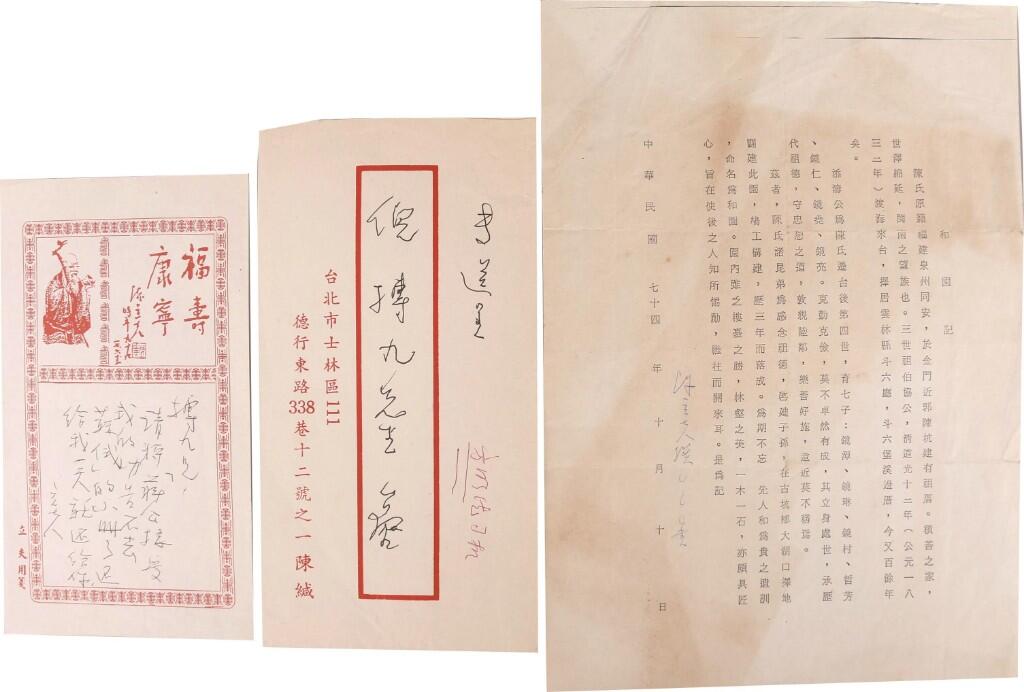 福壽
康寧
陳立夫
時年九十九
搏九兄：
請將蔣公接受
我的
蘇俄的小冊了
給我一天就还給你
立夫
立夫用箋
專送呈
倪搏九先生
台北市士林區111
德行東路338巷十二號之一陳緘
和園記
陳氏原籍福建泉州同安，於金門近郭陳坑建有祖厝。積善之家，
世澤綿延，閩南之望族也。三世祖伯協公，清道光十二年（公元一八
三二年）渡海來台，擇居雲林縣斗六廳，斗六堡溪邊厝，今又百餘年
矣。
添濤公爲陳氏遷台後第四世，育七子：鏡潭、鏡琳、鏡村、哲芳
、鏡仁、鏡堯、鏡亮。克勤克儉，莫不卓然有成，其立身處世，承歷
代祖德，守忠恕之道，敦親睦鄰，樂善好施，遠近莫不稱焉。
茲者，陳氏諸昆弟爲感念祖德，啓建子孫，在古坑鄉大湖口擇地
闢建此園，鳩工構建，歷三年而落成。爲期不忘　先人和爲貴之遺訓
，命名爲和園。園內亭之樓臺之勝，林壑之美，一木一石，亦頗具匠
心，旨在使後之人知所惕勵，繼往而開來耳。是爲記
陳立夫撰
中華民國七十四年十月十日